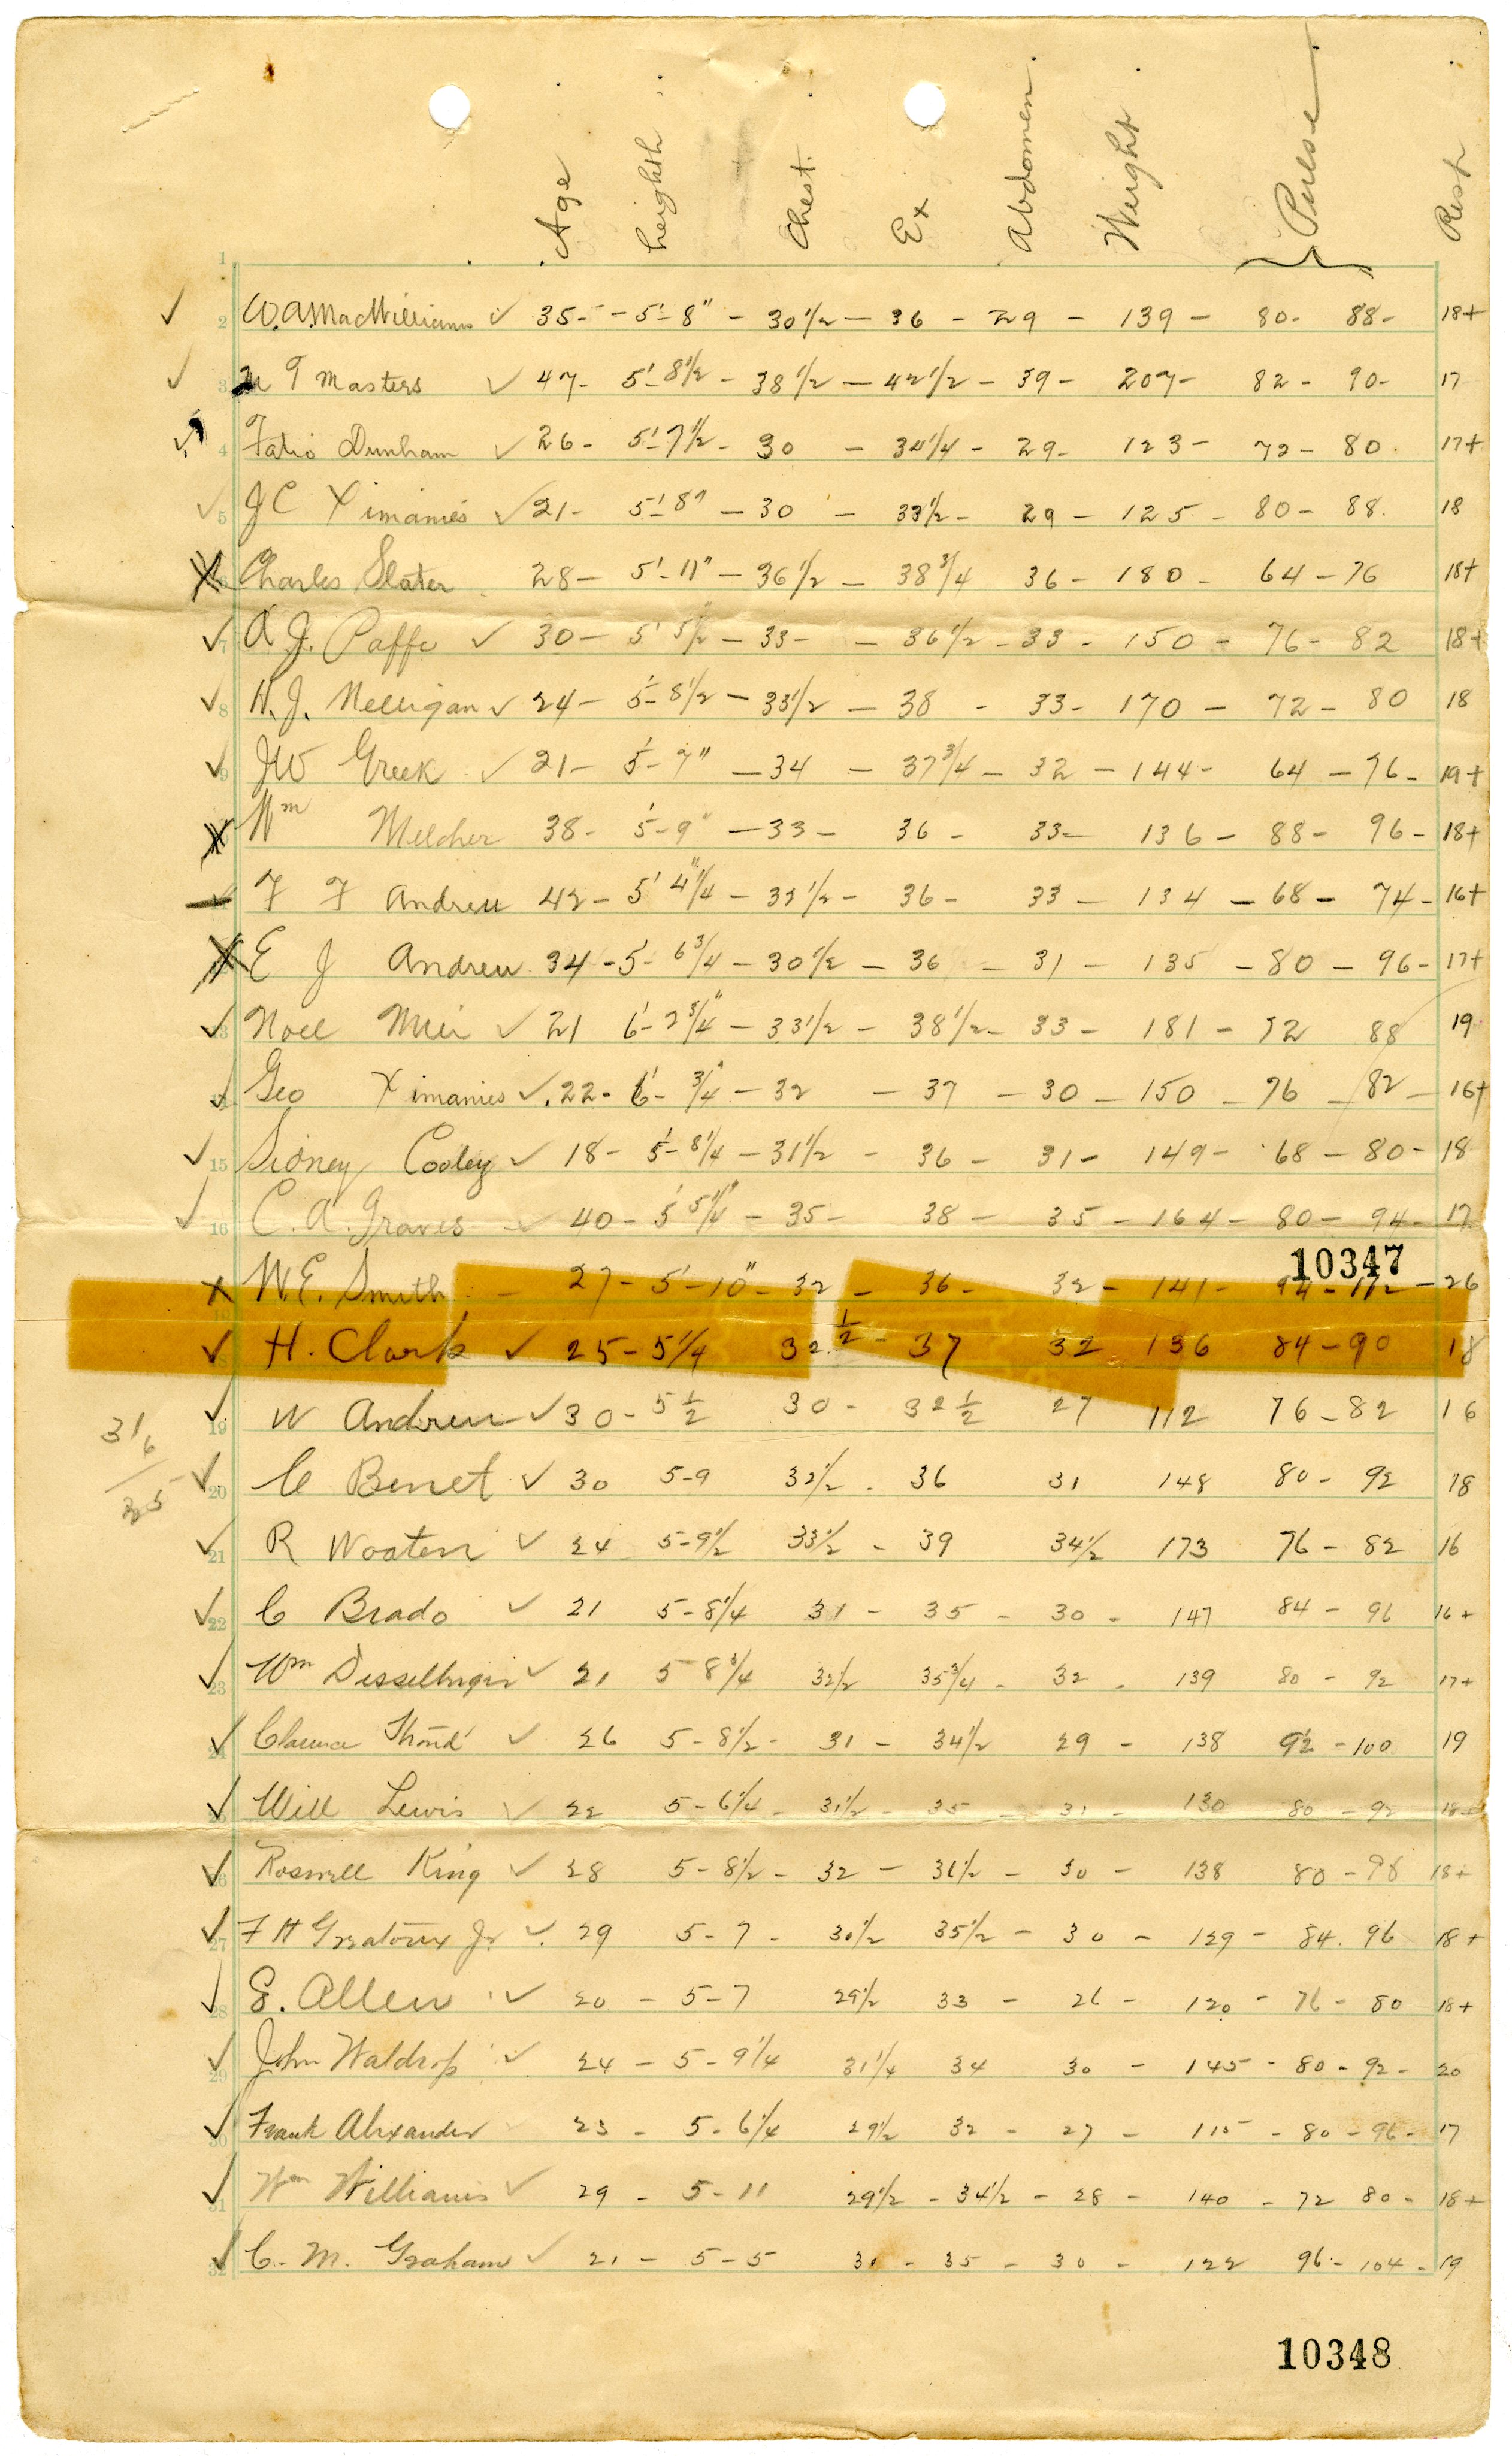 Age heighth Chest. Ex Abdomen. Weight Pulse Resp
1
✓ 2 W.A. MacWilliams ✓ 35 - 5'-8" - 30 1/2 - 36 - 29 - 139 - 80 - 88 - 18+
✓ 3 M T Masters ✓ 47 - 5'-8 1/2 - 38 1/2 - 42 1/2 - 39 - 207 - 82 - 90 - 17
✓ 4 Fatio Dunham ✓ 26 - 5'-7 1/2 - 30 - 34 1/4 - 29 - 123 - 72 - 80 17+
✓ 5 J C Ximanies ✓ 21 - 5'-8" - 30 - 33 1/2 - 29 - 125 - 80 - 88 18
X Charles Slater 28 - 5'-11" - 36 1/2 - 38 3/4 36 - 180 - 64 - 76 18+
✓ 7 A J. Paffe ✓ 30 - 5' 5 1/2" - 33 - 36 1/2 - 33 - 150 - 76 - 82 18+
✓ 8 H. J. Nelligan ✓ 24 - 5'-8 1/2 - 33 1/2 - 38 - 33 - 170 - 72 - 80 18
✓ 9 JW Greek ✓ 21 - 5'-7" - 34 - 37 3/4 - 32 - 144 - 64 - 76 - 19+
X Wm Melcher 38 - 5'-9" - 33 - 36 - 33 - 136 - 88 - 96 - 18+
F F Andreu 42 - 5' 4 1/4" - 32 1/2 - 36 - 33 - 134 - 68 - 74 - 16+
X E J Andreu 34 - 5' 6 3/4 - 30 1/2 - 36 - 31 - 135 - 80 - 96 - 17+
✓ 13 Noel Mier ✓ 21 6'-2 3/4" - 33 1/2 - 38 1/2 - 33 - 181 - 72 88 19
✓ Geo Ximanies ✓ 22 - 6'- 3/4" - 32 - 37 - 30 - 150 - 76 - 82 - 16+
✓ 15 Sidney Cooley ✓ 18 - 5'-8 1/4 - 31 1/2 - 36 - 31 - 149 - 68 - 80 - 18
✓ 16 C. A. Graves ✓ 40 - 5' 5 1/4" - 35 - 38 - 35 - 164 - 80 - 94 - 17
10347
X W.E. Smith - 27 - 5'-10" - 32 - 36 - 32 - 141 - 94 - 112 - 26
✓ H. Clark ✓ 25 - 5 1/4 32 1/2 - 37 32 136 84 - 90 18
✓ 19 W Andreu ✓ 30 - 5 1/2 30 - 32 1/2 27 112 76 - 82 16
31/6
35
✓ 20 C Benet ✓ 30 5-9 32 1/2 - 36 31 148 80 - 92 18
✓ 21 R Wooten ✓ 24 5-9 1/2 33 1/2 - 39 34 1/2 173 76 - 82 16
✓ 22 C Brado ✓ 21 5-8 1/4 31 - 35 - 30 - 147 84 - 96 16+
✓ 23 Wm ✓ 21 5 8 3/4 32 1/2 35 3/4 - 32 - 139 80 - 92 17+
✓ 24 Clarence ✓ 26 5-8 1/2 - 31 - 34 1/2 29 - 138 92 - 100 19
✓ 25 Will Lewis ✓ 22 5-6 1/4 - 31 1/2 - 35 - 31 - 130 80 - 92 18+
✓ 26 Roswell King ✓ 28 5-8 1/2 - 32 - 36 1/2 - 30 - 138 80 - 98 18+
✓ 27 F H Jr ✓ 29 5-7 - 30 1/2 35 1/2 - 30 - 129 - 84. 96 18+
✓ 28 E. Allen ✓ 20 - 5-7 29 1/2 33 - 26 - 120 - 76 - 80 18+
✓ 29 John Waldrop ✓ 24 - 5-9 1/4 31 1/4 34 30 - 145 - 80 - 92 - 20
✓ 30 Frank Alexander 23 - 5-6 1/4 29 1/2 32 - 27 - 115 - 80 - 96 - 17
✓ 31 Wm Williams ✓ 29 - 5-11 29 1/2 - 34 1/2 - 28 - 140 - 72 80 - 18+
✓ 32 C. M. Graham ✓ 21 - 5-5 30 - 35 - 30 - 122 96 - 104 - 19
10348